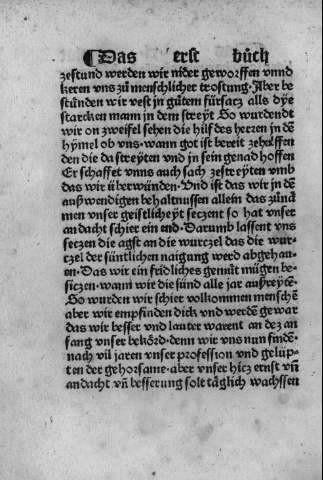 ¶ Das erst bůch
zestund werden wir nider geworffen vnnd
keren vns zů menschlicher trostung. Aber be
stůnden wir vest jn gůtem fürsacz alls dye
starcken mann in dem streyt. So wurdendt
wir on zweifel sehen die hilf des herren jn dē
hymel ob vns. wann got ist bereit zehelffen
den die da streyten vnd jn sein genad hoffen
Er schaffet vnns auch sach zestreyten vmb
das wir überwünden. Vnd ist das wir jn dē
außwendigen behaltnussen allein das zůnā
men vnser geistlicheyt seczent so hat vnser
andacht schier ein end. Darumb lassent vns
seczen die agst an die wurczel das die wur⸗
czel der süntlichen naigung werd abgehau⸗
en. Das wir ein fridliches gemüt mügen be⸗
siczen. wann wir die sünd alle jar außreytē.
So wurden wir schier volkommen menschē
aber wir empfinden dick vnd werdē gewar
das wir besser vnd lauter warent an dez an
fang vnser bekörd. denn wir vns nun findē.
nach vil jaren vnser profession vnd gelüp⸗
ten der gehorsame. aber vnser hicz ernst vñ
andacht vñ besserung solt täglich wachssen